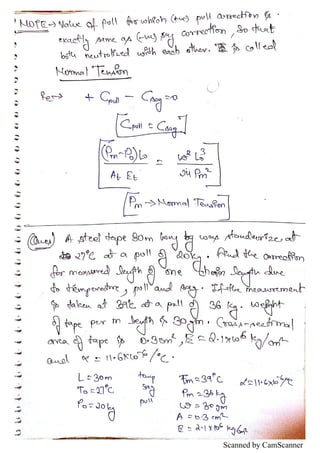 NOTE → Value of pull for which (+ve) pull correction is
exactly same as (-ve) sag correction, so that
both neutralized with each other. It is called
Normal Tension
Pe → + Cpull - Csag = 0
Cpull = Csag
(Pm-P0)L0 / At Et = w² L0³ / 24 Pm²
Pm → Normal Tension
(Ques) A steel tape 30m long was standardize at
27°C at a pull of 20kg. Find the correction
for measured length of one chain length due
to temperature, pull and sag. If the measurement
is taken at 39°C at a pull of 36 kg. weight
of tape per m length is 30gm. Cross-sectional
area of tape is 0.3cm², E = 2.1×10⁶ kg/cm²
and α = 11.6×10⁻⁶/°C.
L = 30m temp Tm = 39°C α = 11.6×10⁻⁶/°C
T0 = 27°C sag Pm = 36kg
P0 = 20kg pull w = 30gm
A = 0.3cm²
E = 2.1×10⁶ kg/cm²
Scanned by CamScanner